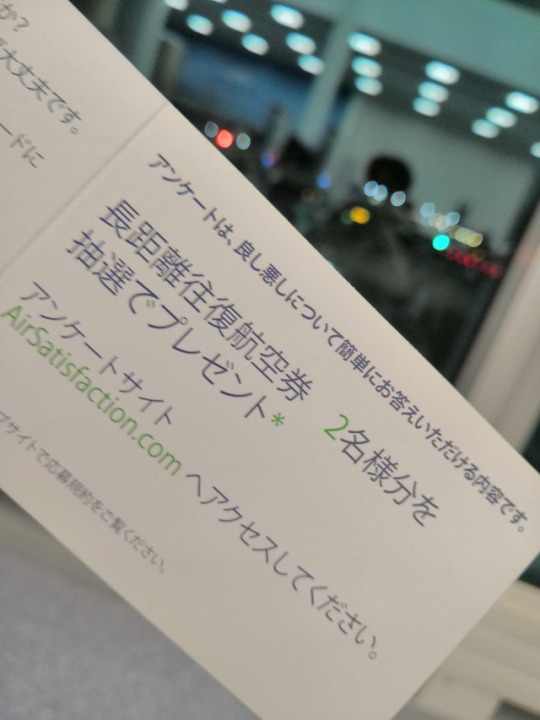 か?
大丈夫です。
ードに
アンケートは、良し悪しについて簡単にお答えいただける内容です。
長距離往復航空券 2名様分を
抽選でプレゼント*
アンケートサイト
AirSatisfaction.com へアクセスしてください。
ブサイトで応募規約をご覧ください。